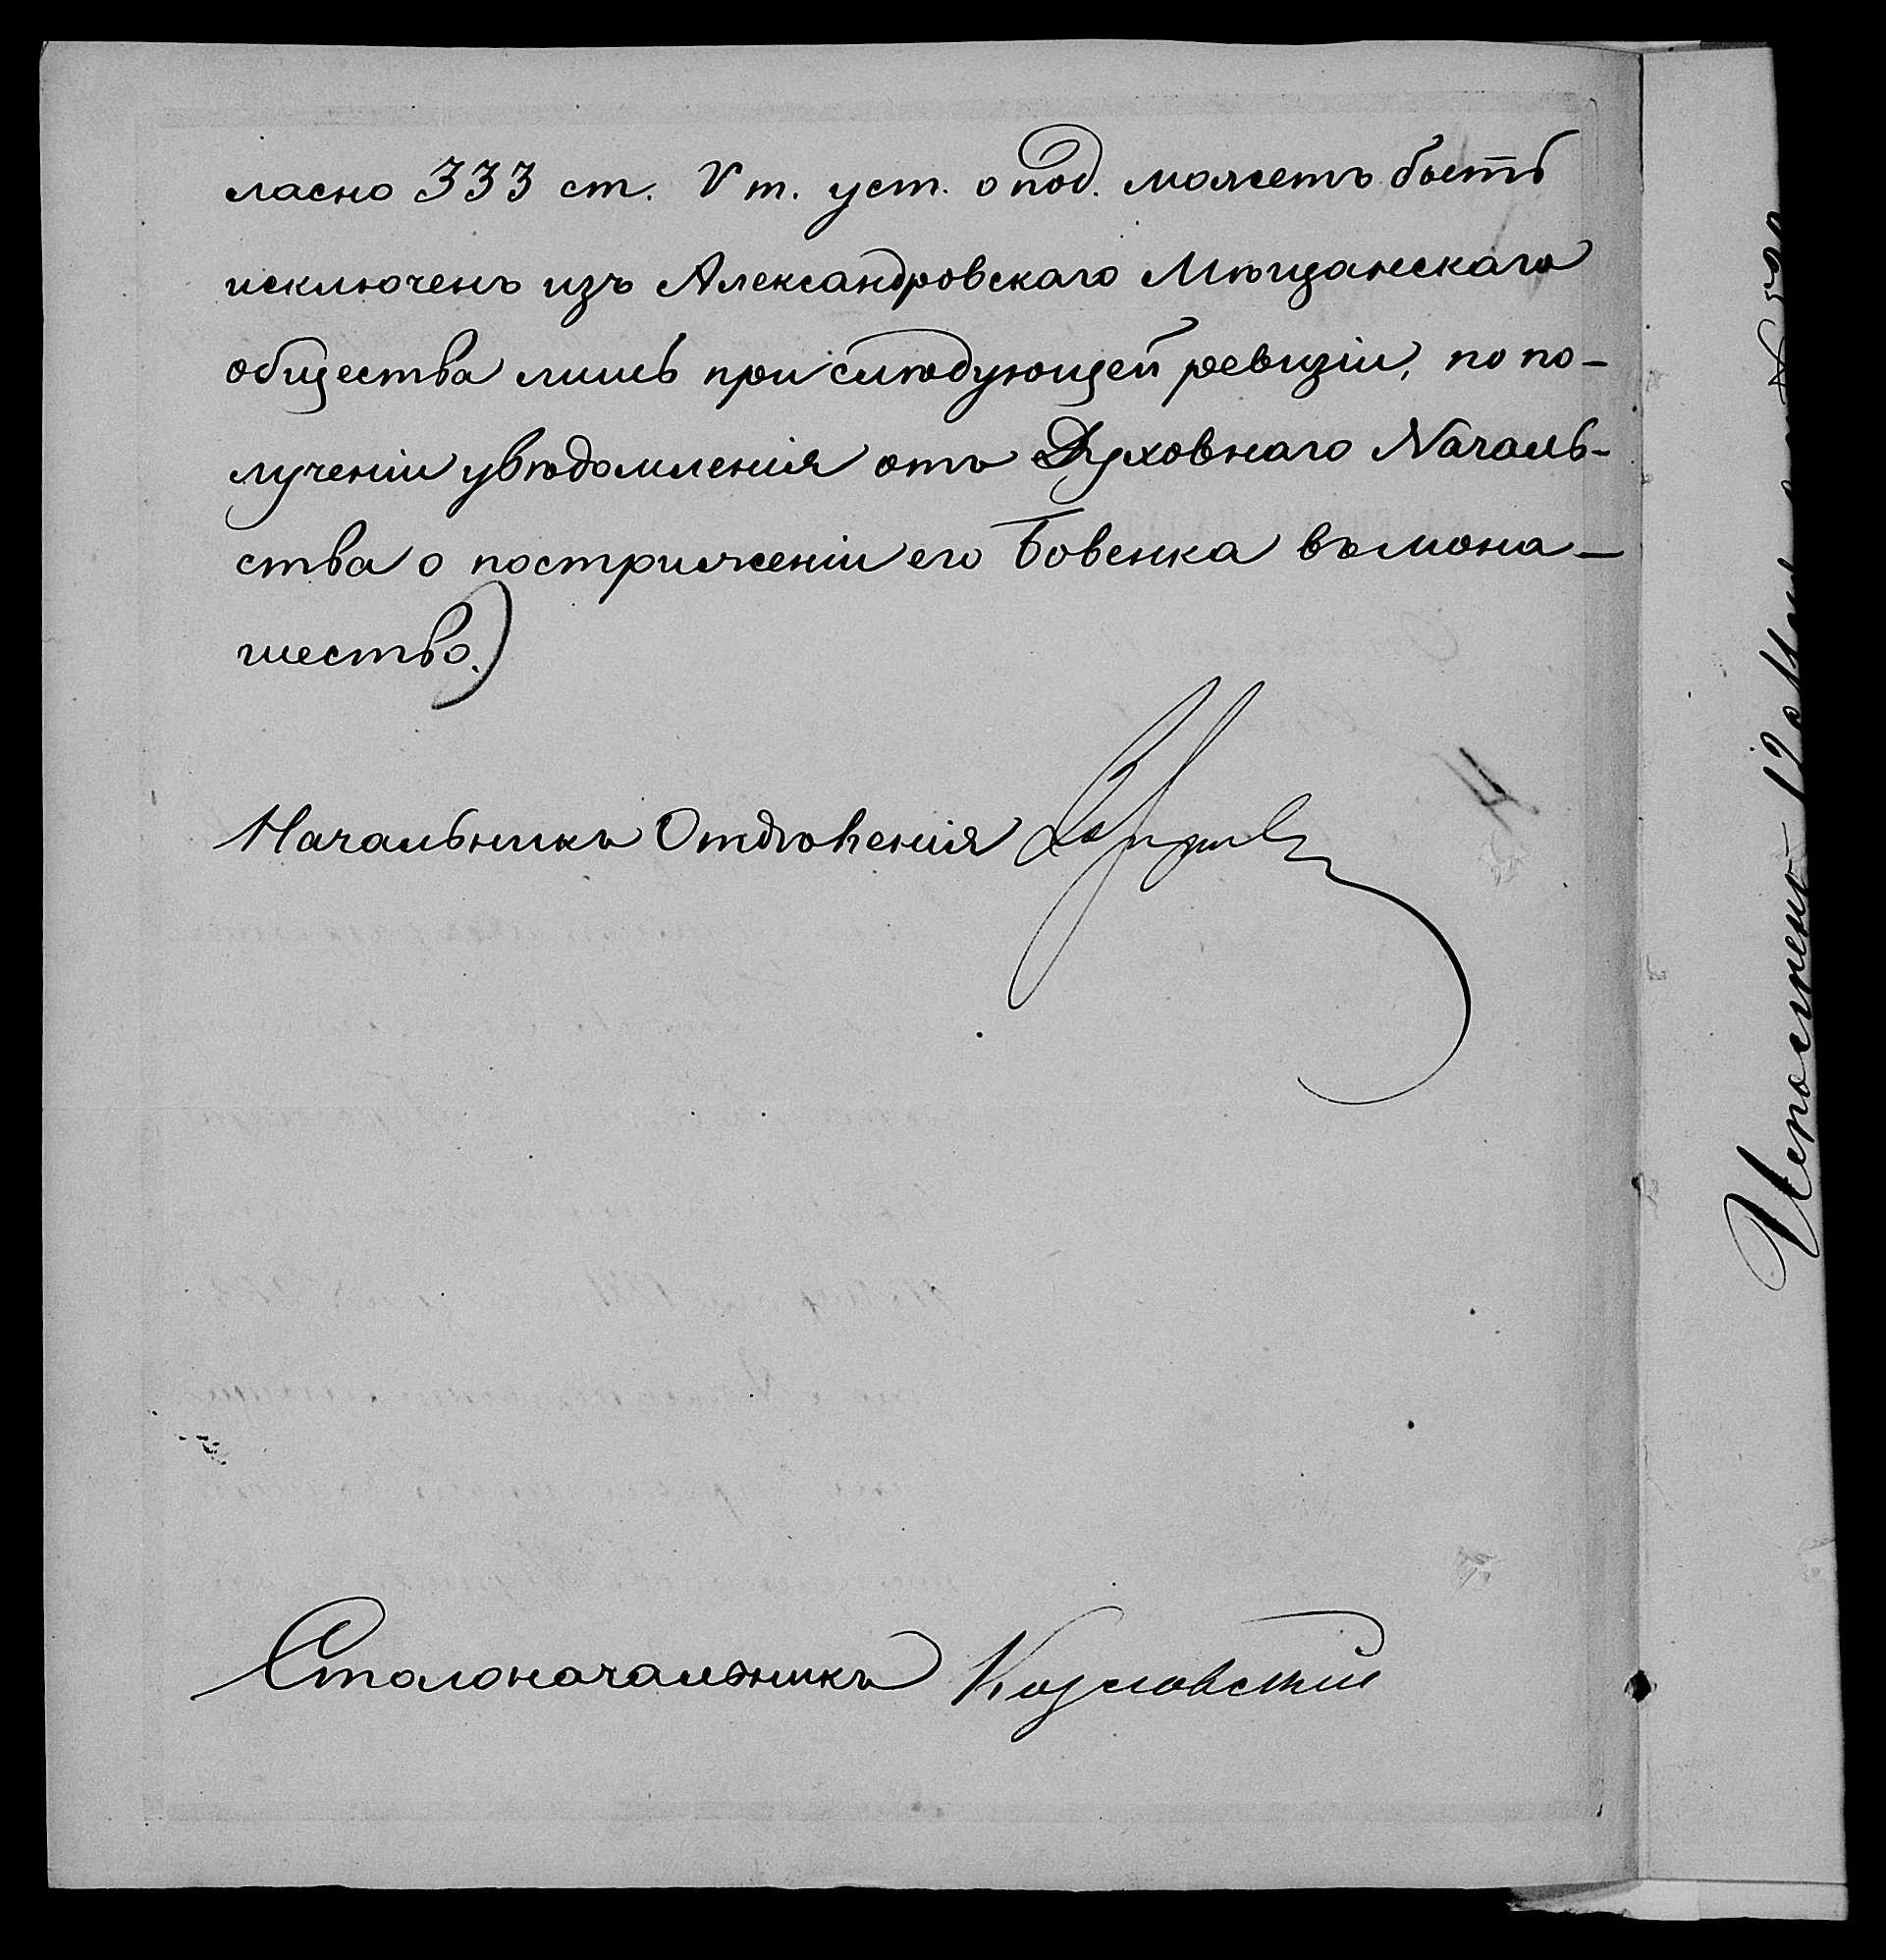 ласно 333 ст. V т. уст. о под. можетъ быть
исключенъ изъ Александровскаго Мѣщанскаго
общества лишь при слѣдующей ревизіи, по по-
лученіи увѣдомленія отъ Духовнаго Началь-
ства о постриженіи его Бовенка въ мона-
шество.)
Начальникъ Отдѣленія
Столоначальникъ Козловскій
Исполнено 12